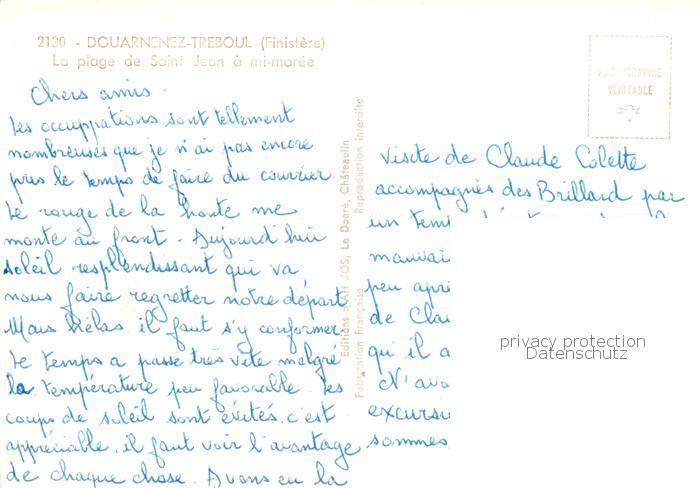 2130 - DOUARNENEZ-TREBOUL (Finistère)
La plage de Saint Jean à mi-marée
PHOTOGRAPHIE
VÉRITABLE
Chers amis.
Les occuppations sont tellement
nombreuses que je n'ai pas encore
pris le temps de faire du courrier.
Le rouge de la honte me
monte au front - Aujourd'hui
soleil resplendissant qui va
nous faire regretter notre départ.
Mais hélas il faut s'y conformer.
Le temps a passé très vite malgré
la température peu favorable. les
coups de soleil sont évités. c'est
appréciable. il faut voir l'avantage
de chaque chose. Avons eu la
Editions d'Art JOS, Le Doaré, Châteaulin
Fabrication Française Reproduction interdite
visite de Claude Colette
accompagnés des Brillard par
un tem
mauvai
peu apr
de Cla
qui il a
N'avo
excursi
sommes
privacy protection
Datenschutz